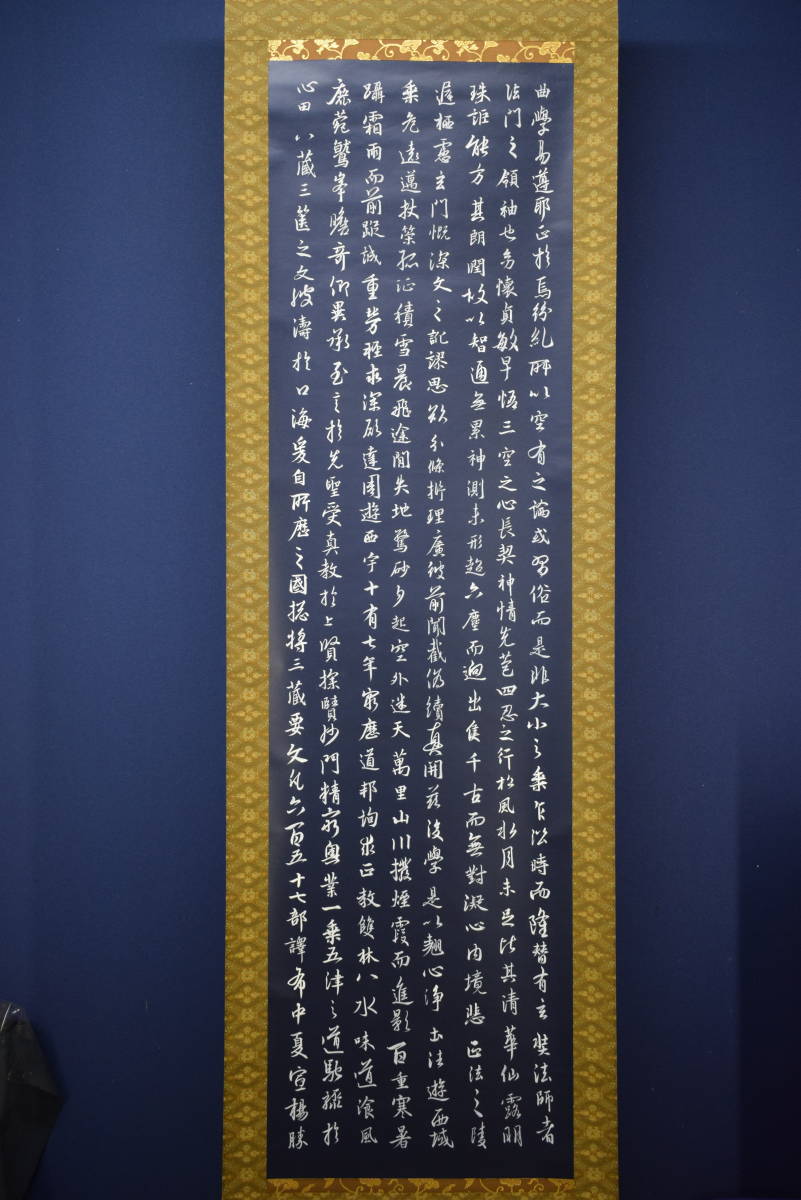 曲學易遵耶正於焉紛糺所以空有之論或習俗而是非大小之乘乍沿時而隆替有玄奘法師者
法門之領袖也幼懷貞敏早悟三空之心長契神情先苞四忍之行松風水月未足比其清華仙露明
珠詎能方其朗潤故以智通無累神測未形超六塵而迥出隻千古而無對凝心內境悲正法之陵
遲栖慮玄門慨深文之訛謬思欲分條析理廣彼前聞截偽續真開茲後學是以翹心淨土法遊西域
乘危遠邁杖策孤征積雪晨飛途閒失地驚砂夕起空外迷天萬里山川撥煙霞而進影百重寒暑
躡霜雨而前蹤誠重勞輕求深願達周遊西宇十有七年窮歷道邦詢求正教雙林八水味道飡風
鹿菀鷲峯瞻奇仰異承至言於先聖受真教於上賢探賾妙門精窮奧業一乘五津之道馳驟於
心田八藏三篋之文波濤於口海爰自所歷之國捴將三藏要文凡六百五十七部譯布中夏宣楊勝